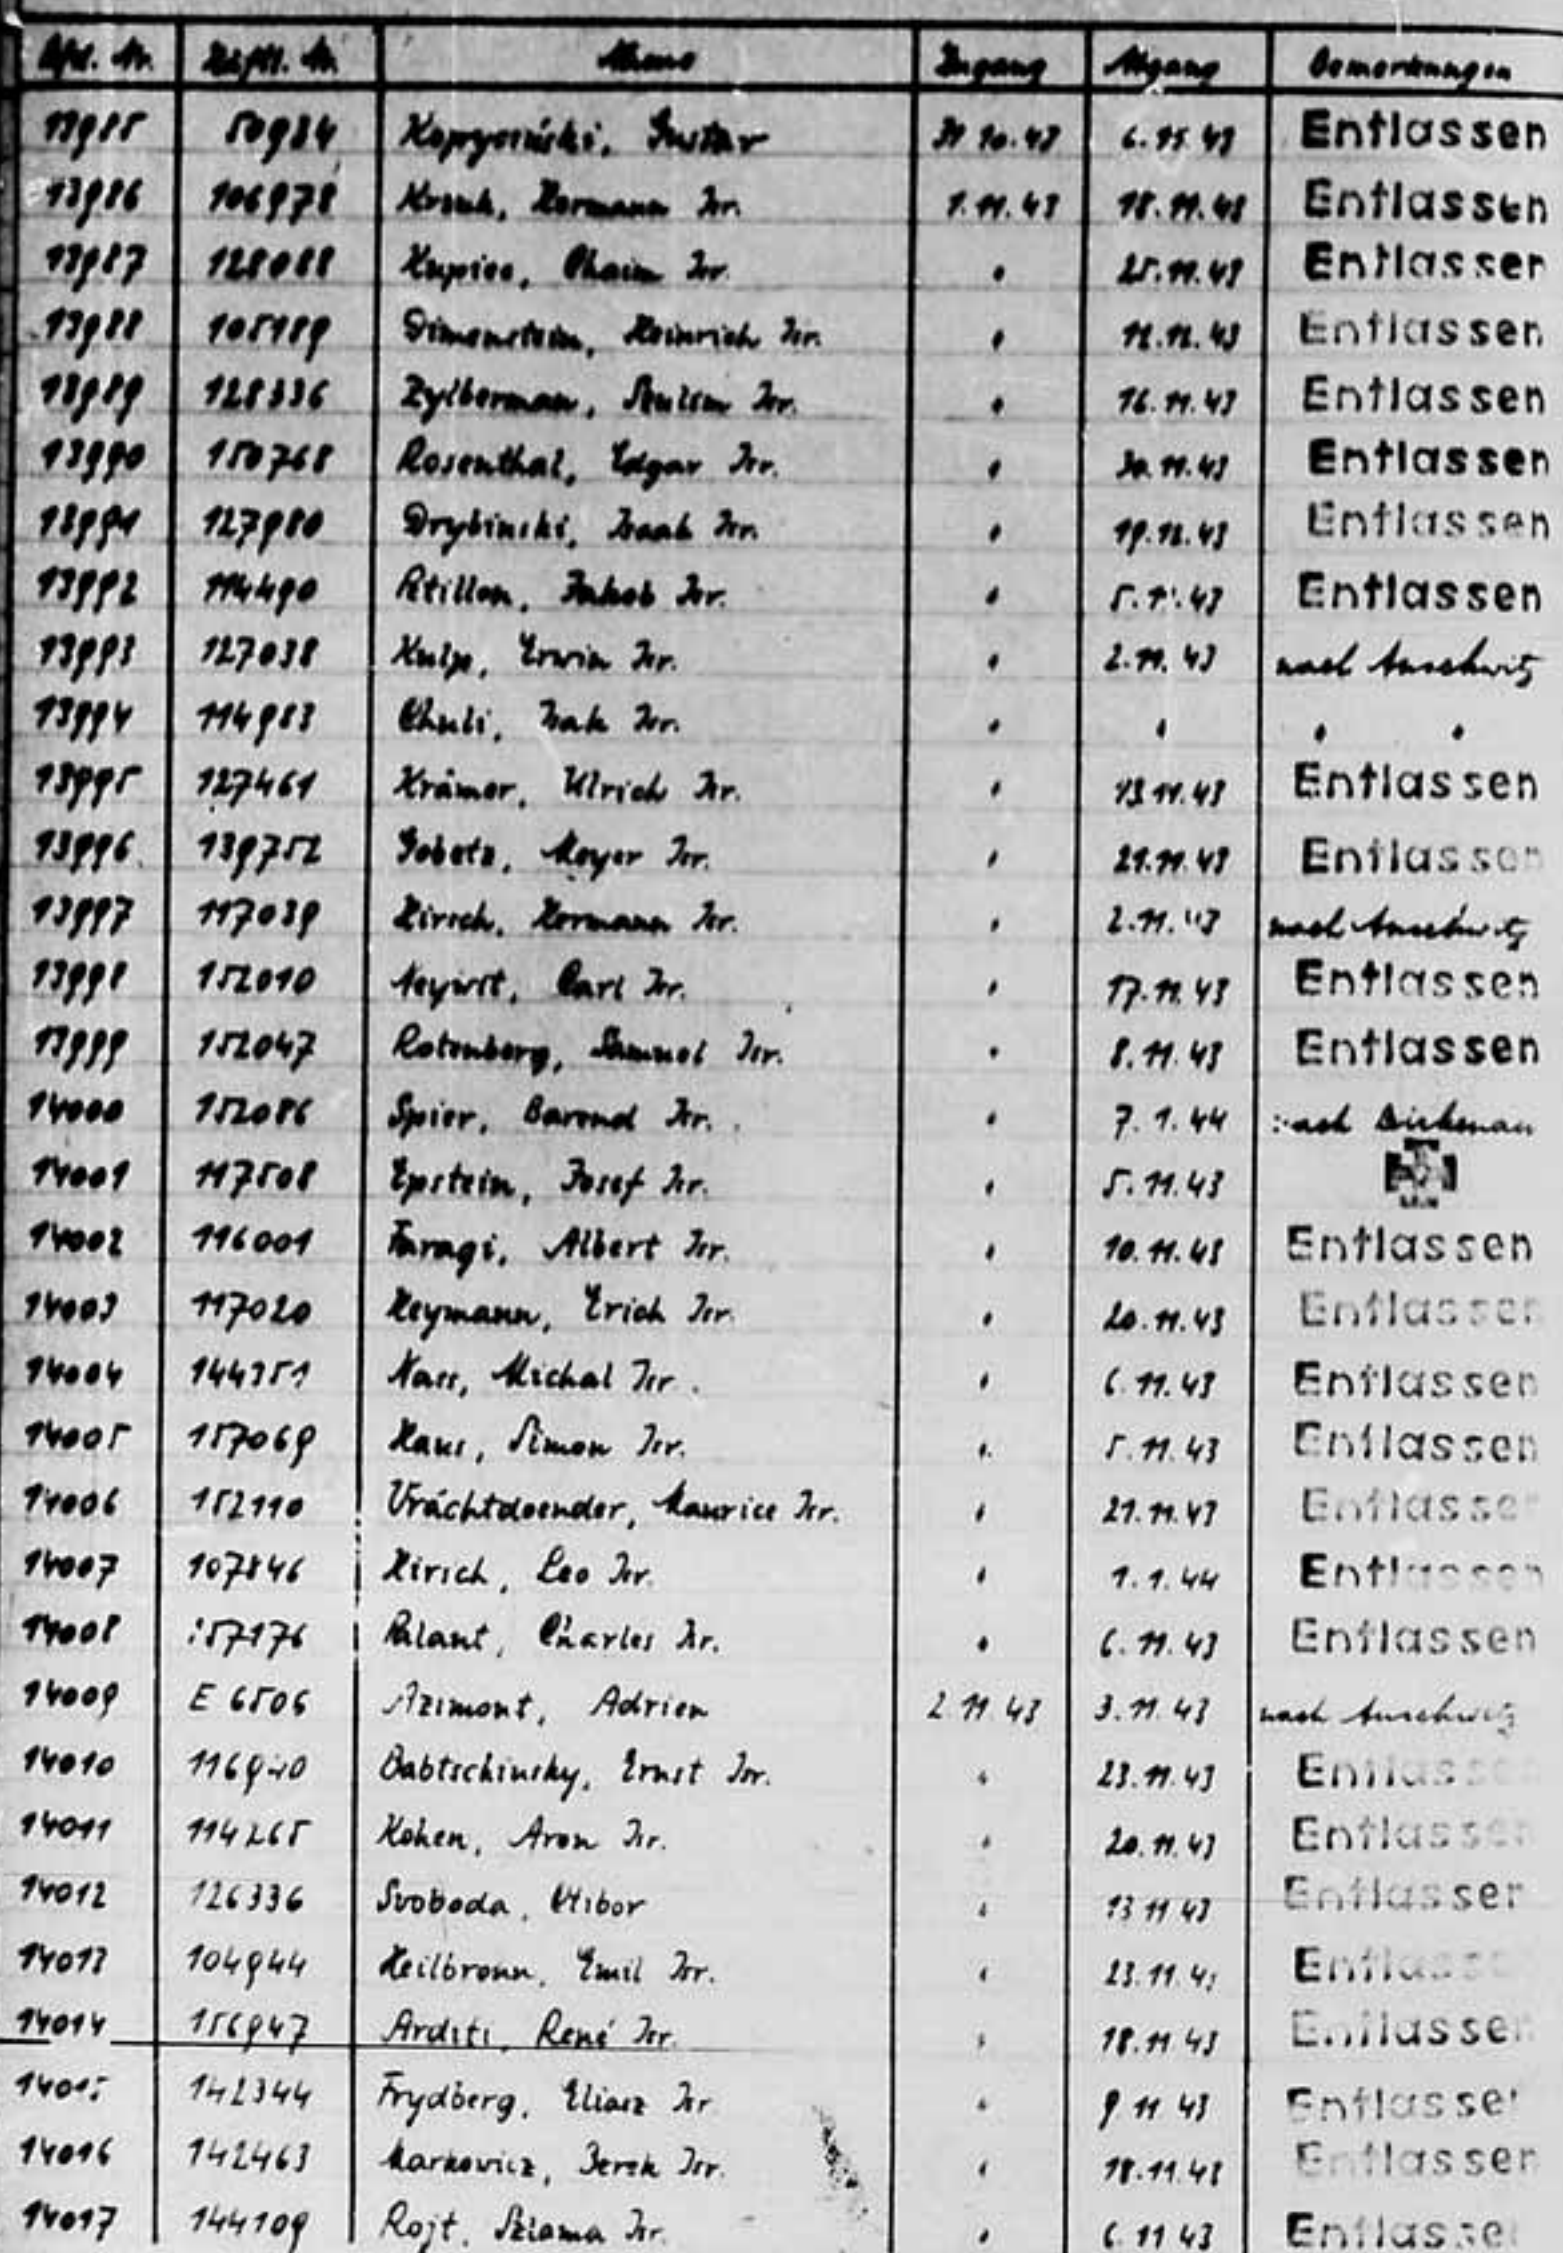 Lfd. Nr. Häftl. Nr. Name Zugang Abgang Bemerkungen
13985 50934 Gustav 31.10.43 6.11.43 Entlassen
13986 106978 Hermann Isr. 1.11.43 18.11.43 Entlassen
13987 128088 Kupiec, Chaim Isr. " 25.11.43 Entlassen
13988 105189 Dimenstein, Heinrich Isr. " 12.12.43 Entlassen
13989 128336 Zylberman, Isr. " 16.11.43 Entlassen
13990 150768 Rosenthal, Edgar Isr. " 30.11.43 Entlassen
13991 127980 Drybinski, Isaak Isr. " 19.12.43 Entlassen
13992 114490 Jakob Isr. " 43 Entlassen
13993 127038 Erwin Isr. " 2.11.43 nach Auschwitz
13994 114983 Chuli, Isak Isr. " " " "
13995 127461 Krämer, Ulrich Isr. " 13.11.43 Entlassen
13996 139752 Meyer Isr. " 21.11.43 Entlassen
13997 117039 Hirsch, Hermann Isr. " 2.11.43 nach Auschwitz
13998 152010 Carl Isr. " 17.11.43 Entlassen
13999 152047 Rotenberg, Samuel Isr. " 8.11.43 Entlassen
14000 152086 Spier, Barend Isr. " 7.1.44 nach Birkenau
14001 117508 Epstein, Josef Isr. " 5.11.43
14002 116001 Faragi, Albert Isr. " 10.11.43 Entlassen
14003 117020 Heymann, Erich Isr. " 20.11.43 Entlassen
14004 144351 Nass, Michal Isr. " 6.11.43 Entlassen
14005 157069 Haus, Simon Isr. " 5.11.43 Entlassen
14006 152110 Vráchtdoender, Maurice Isr. " 21.11.43 Entlassen
14007 107846 Hirsch, Leo Isr. " 1.1.44 Entlassen
14008 157176 Palant, Charles Isr. " 6.11.43 Entlassen
14009 E 6506 Azimont, Adrien 2.11.43 3.11.43 nach Auschwitz
14010 Babtschinsky, Ernst Isr. " 23.11.43 Entlassen
14011 114265 Kohen, Aron Isr. " 20.11.43 Entlassen
14012 126336 Svoboda, Ctibor " 13.11.43 Entlassen
14013 104944 Heilbronn, Emil Isr. " 23.11.43 Entlassen
14014 156947 Arditi, René Isr. " 18.11.43 Entlassen
14015 142344 Frydberg, Eliasz Isr. " 9.11.43 Entlassen
14016 142463 Markovicz, Berek Isr. " 18.11.43 Entlassen
14017 144109 Rojt, Szlama Isr. " 6.11.43 Entlassen